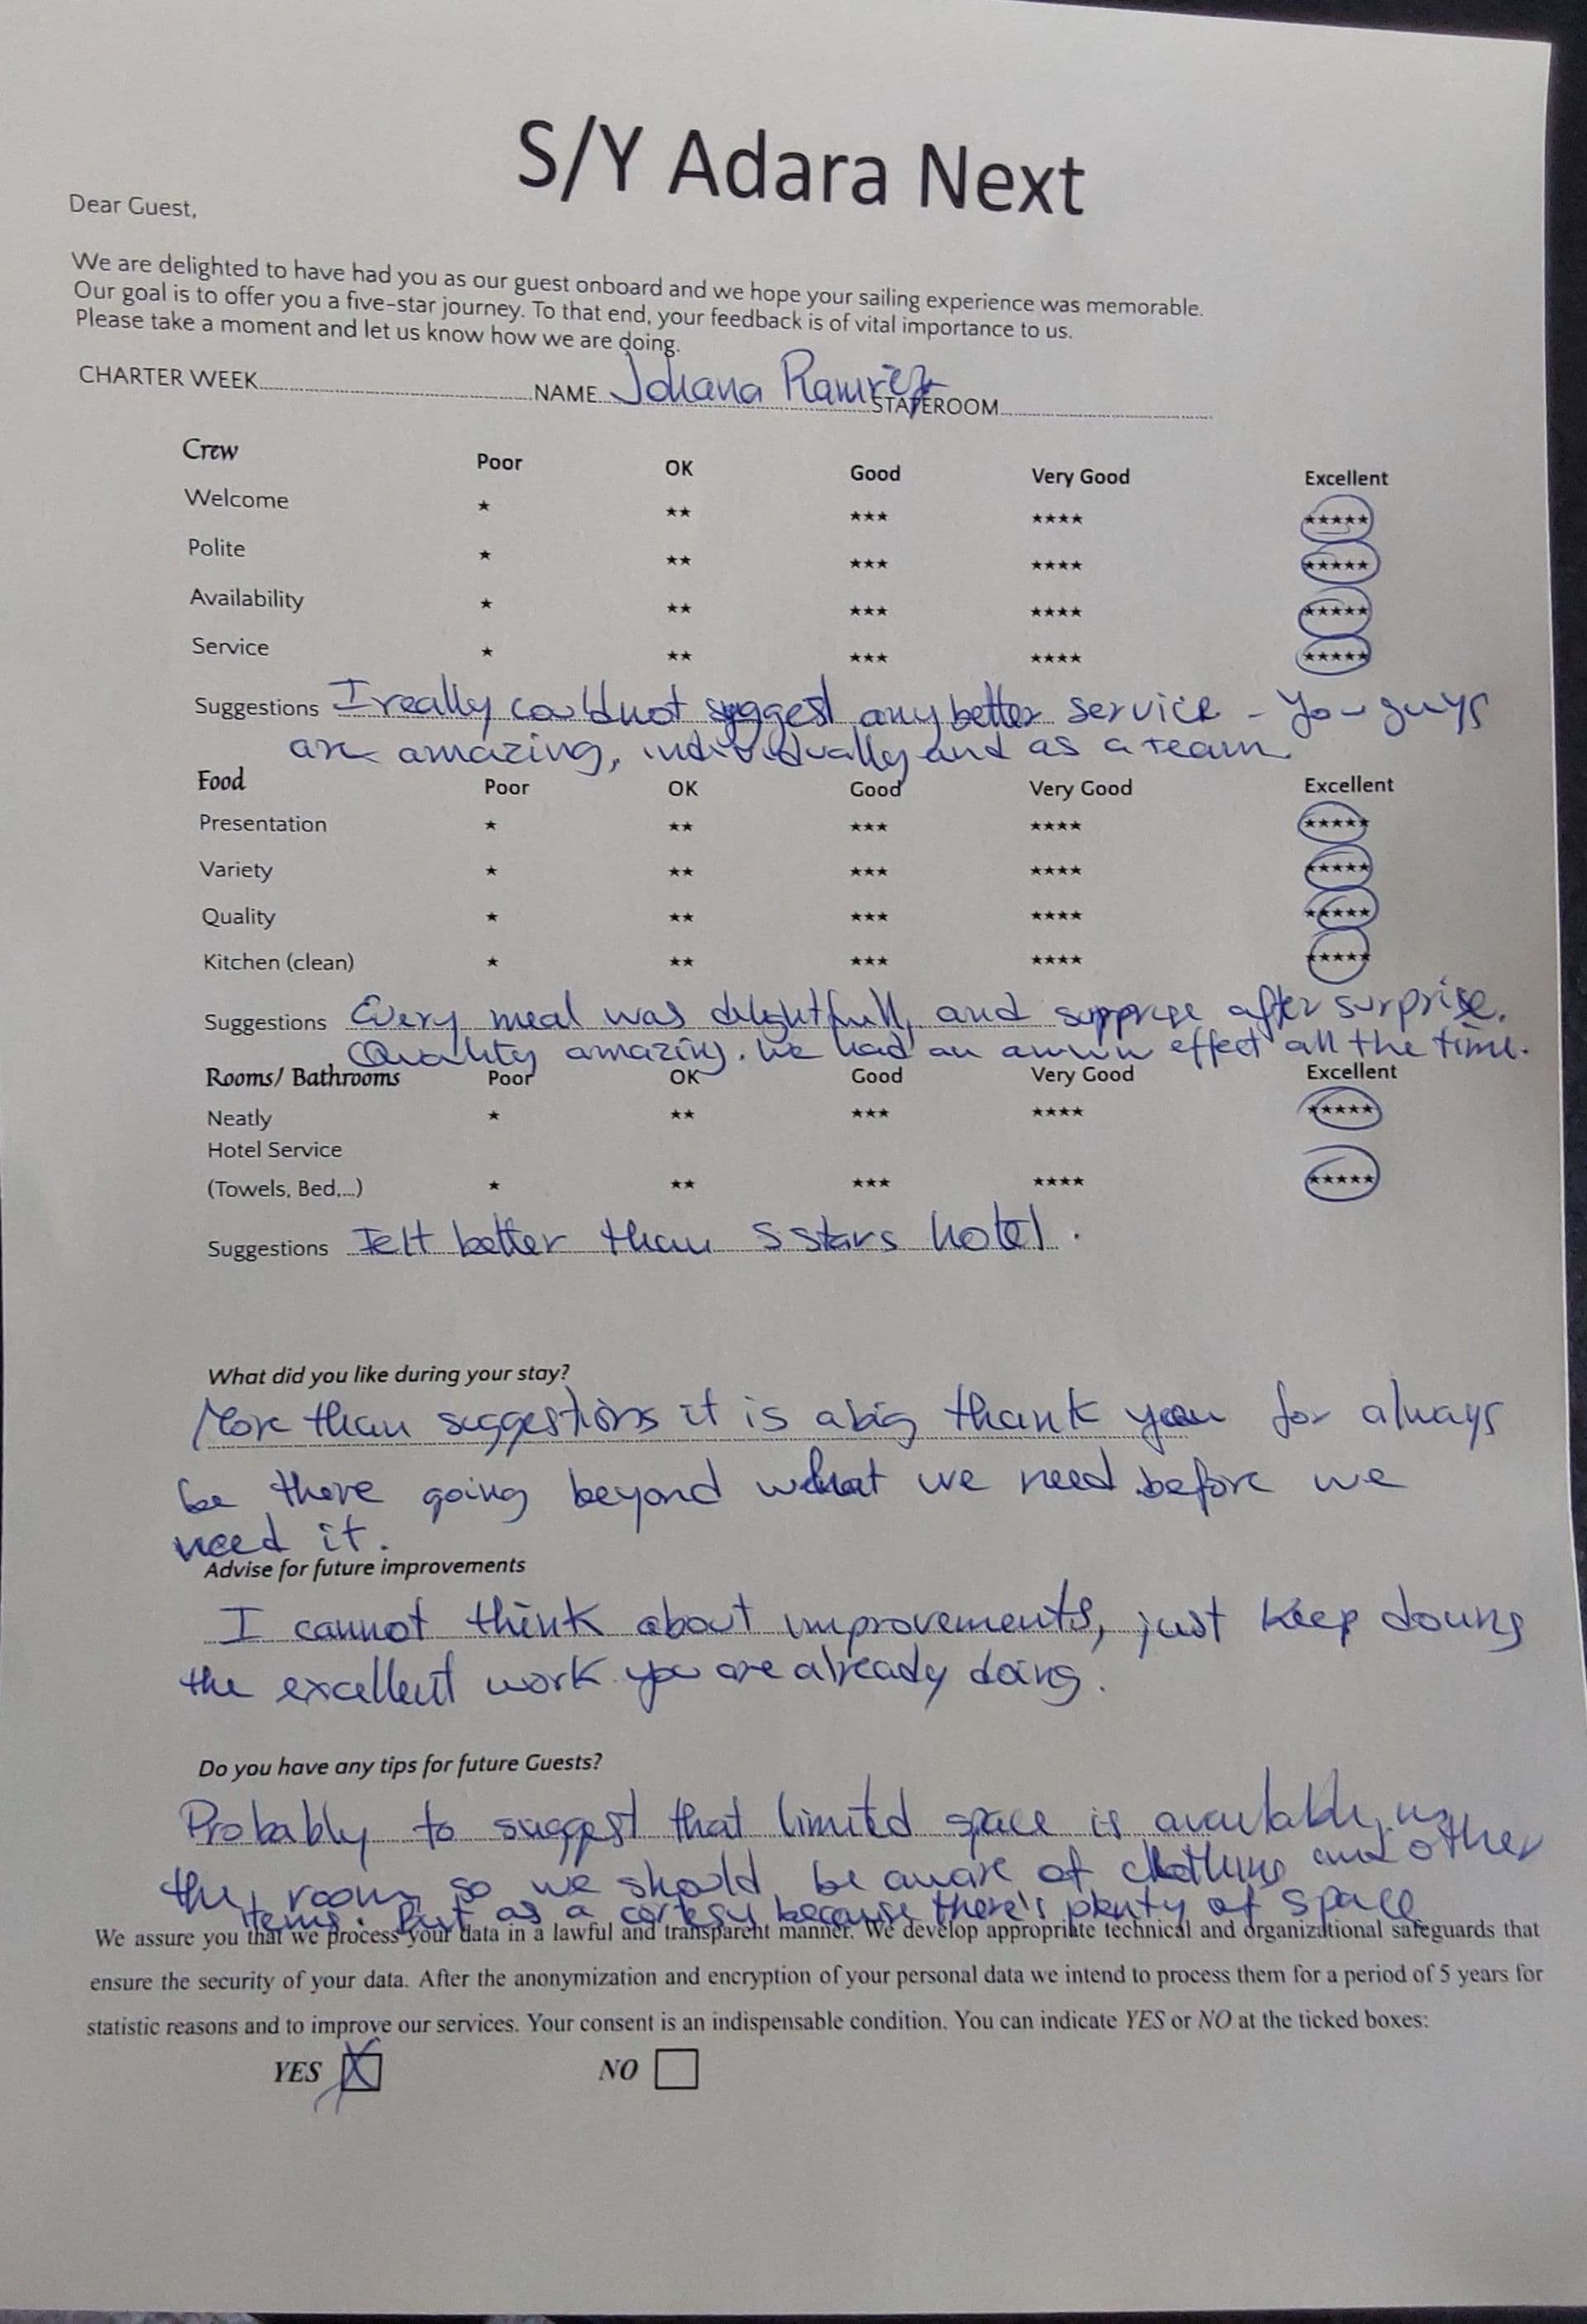 S/Y Adara Next
Dear Guest,
We are delighted to have had you as our guest onboard and we hope your sailing experience was memorable.
Our goal is to offer you a five-star journey. To that end, your feedback is of vital importance to us.
Please take a moment and let us know how we are doing.
CHARTER WEEK NAME Johana Ramirez STATEROOM
Crew Poor OK Good Very Good Excellent
Welcome ★ ★★ ★★★ ★★★★ ★★★★★
Polite ★ ★★ ★★★ ★★★★ ★★★★★
Availability ★ ★★ ★★★ ★★★★ ★★★★★
Service ★ ★★ ★★★ ★★★★ ★★★★★
Suggestions I really could not suggest any better service - You guys
are amazing, individually and as a team.
Food Poor OK Good Very Good Excellent
Presentation ★ ★★ ★★★ ★★★★ ★★★★★
Variety ★ ★★ ★★★ ★★★★ ★★★★★
Quality ★ ★★ ★★★ ★★★★ ★★★★★
Kitchen (clean) ★ ★★ ★★★ ★★★★ ★★★★★
Suggestions Every meal was delightfull, and supprise after surprise.
Quality amazing. We had an effect all the time.
Rooms/ Bathrooms Poor OK Good Very Good Excellent
Neatly ★ ★★ ★★★ ★★★★ ★★★★★
Hotel Service
(Towels, Bed,...) ★ ★★ ★★★ ★★★★ ★★★★★
Suggestions Felt better than 5 stars hotel.
What did you like during your stay?
More than suggestions it is a big thank you for always
be there going beyond what we need before we
need it.
Advise for future improvements
I cannot think about improvements, just keep doing
the excellent work you are already doing.
Do you have any tips for future Guests?
Probably to suggest that limited space is available in
the room so we should be aware of clothing and other
items. But as a cortesy because there's plenty of space
We assure you that we process your data in a lawful and transparent manner. We develop appropriate technical and organizational safeguards that
ensure the security of your data. After the anonymization and encryption of your personal data we intend to process them for a period of 5 years for
statistic reasons and to improve our services. Your consent is an indispensable condition. You can indicate YES or NO at the ticked boxes:
YES X NO